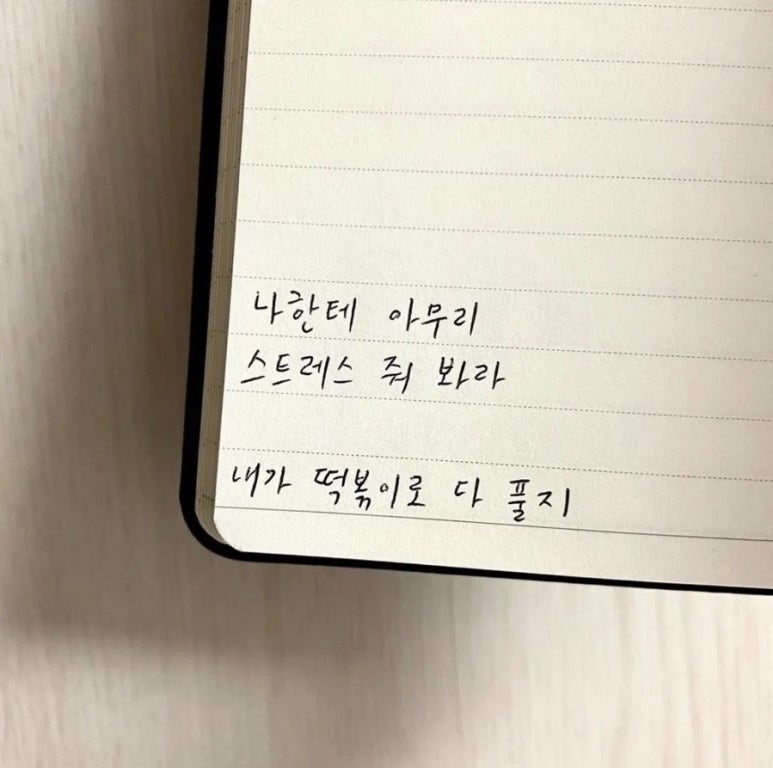 나한테 아무리
스트레스 줘 봐라
내가 떡볶이로 다 풀지